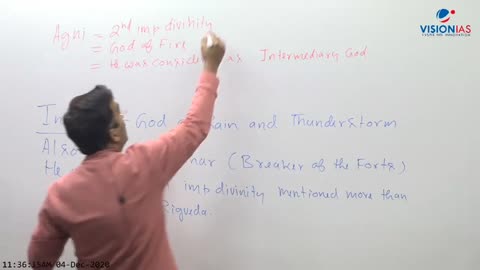 VISIONIAS
INSPIRING INNOVATION
Agni = 2nd imp divinity
= God of Fire
= He was consider as Intermediary God
God of Rain and Thunderstorm
Also nar (Breaker of the Forts)
He imp divinity mentioned more than
Rigveda.
11:36:15AM/04-Dec-2020